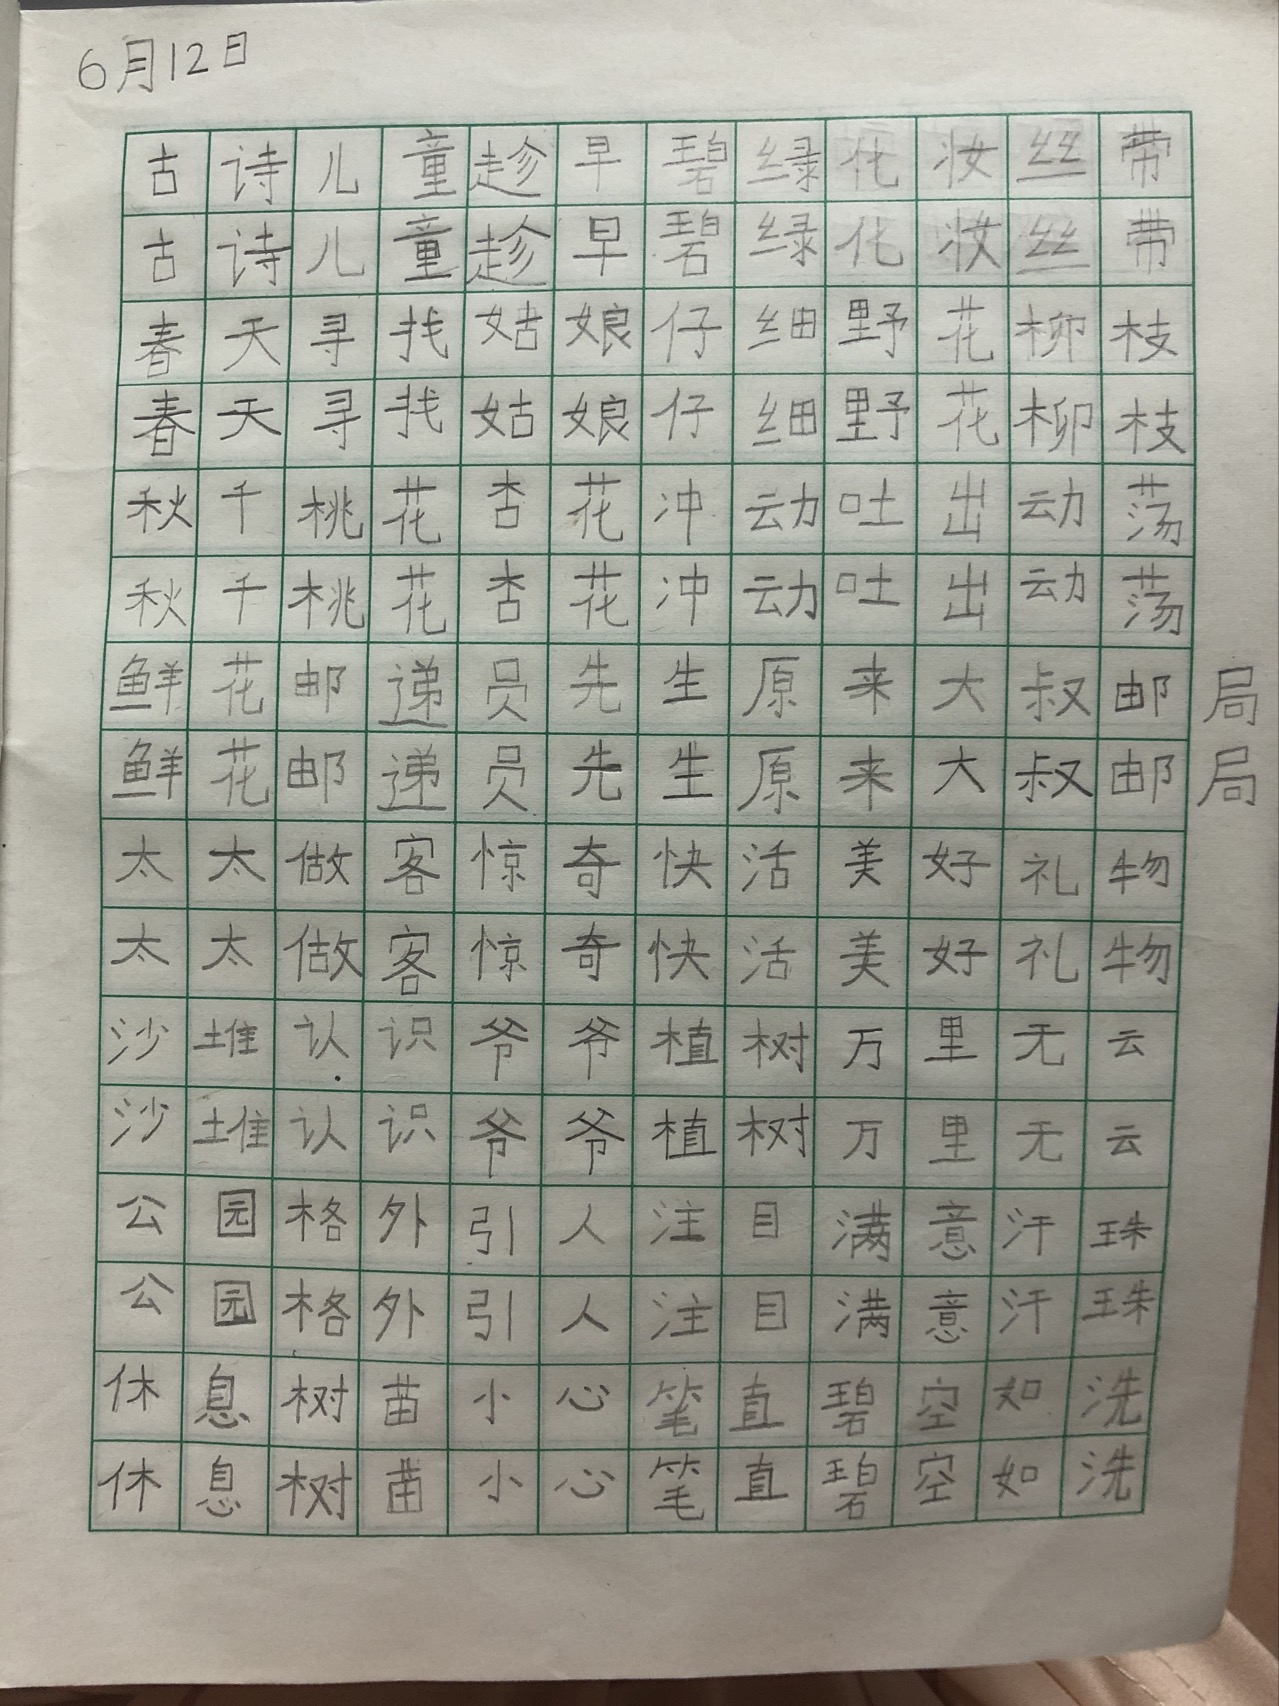 6月12日
古诗儿童趁早碧绿化妆丝带
古诗儿童趁早碧绿化妆丝带
春天寻找姑娘仔细野花柳枝
春天寻找姑娘仔细野花柳枝
秋千桃花杏花冲动吐出动荡
秋千桃花杏花冲动吐出动荡
鲜花邮递员先生原来大叔邮局
鲜花邮递员先生原来大叔邮局
太太做客惊奇快活美好礼物
太太做客惊奇快活美好礼物
沙堆认识爷爷植树万里无云
沙堆认识爷爷植树万里无云
公园格外引人注目满意汗珠
公园格外引人注目满意汗珠
休息树苗小心笔直碧空如洗
休息树苗小心笔直碧空如洗